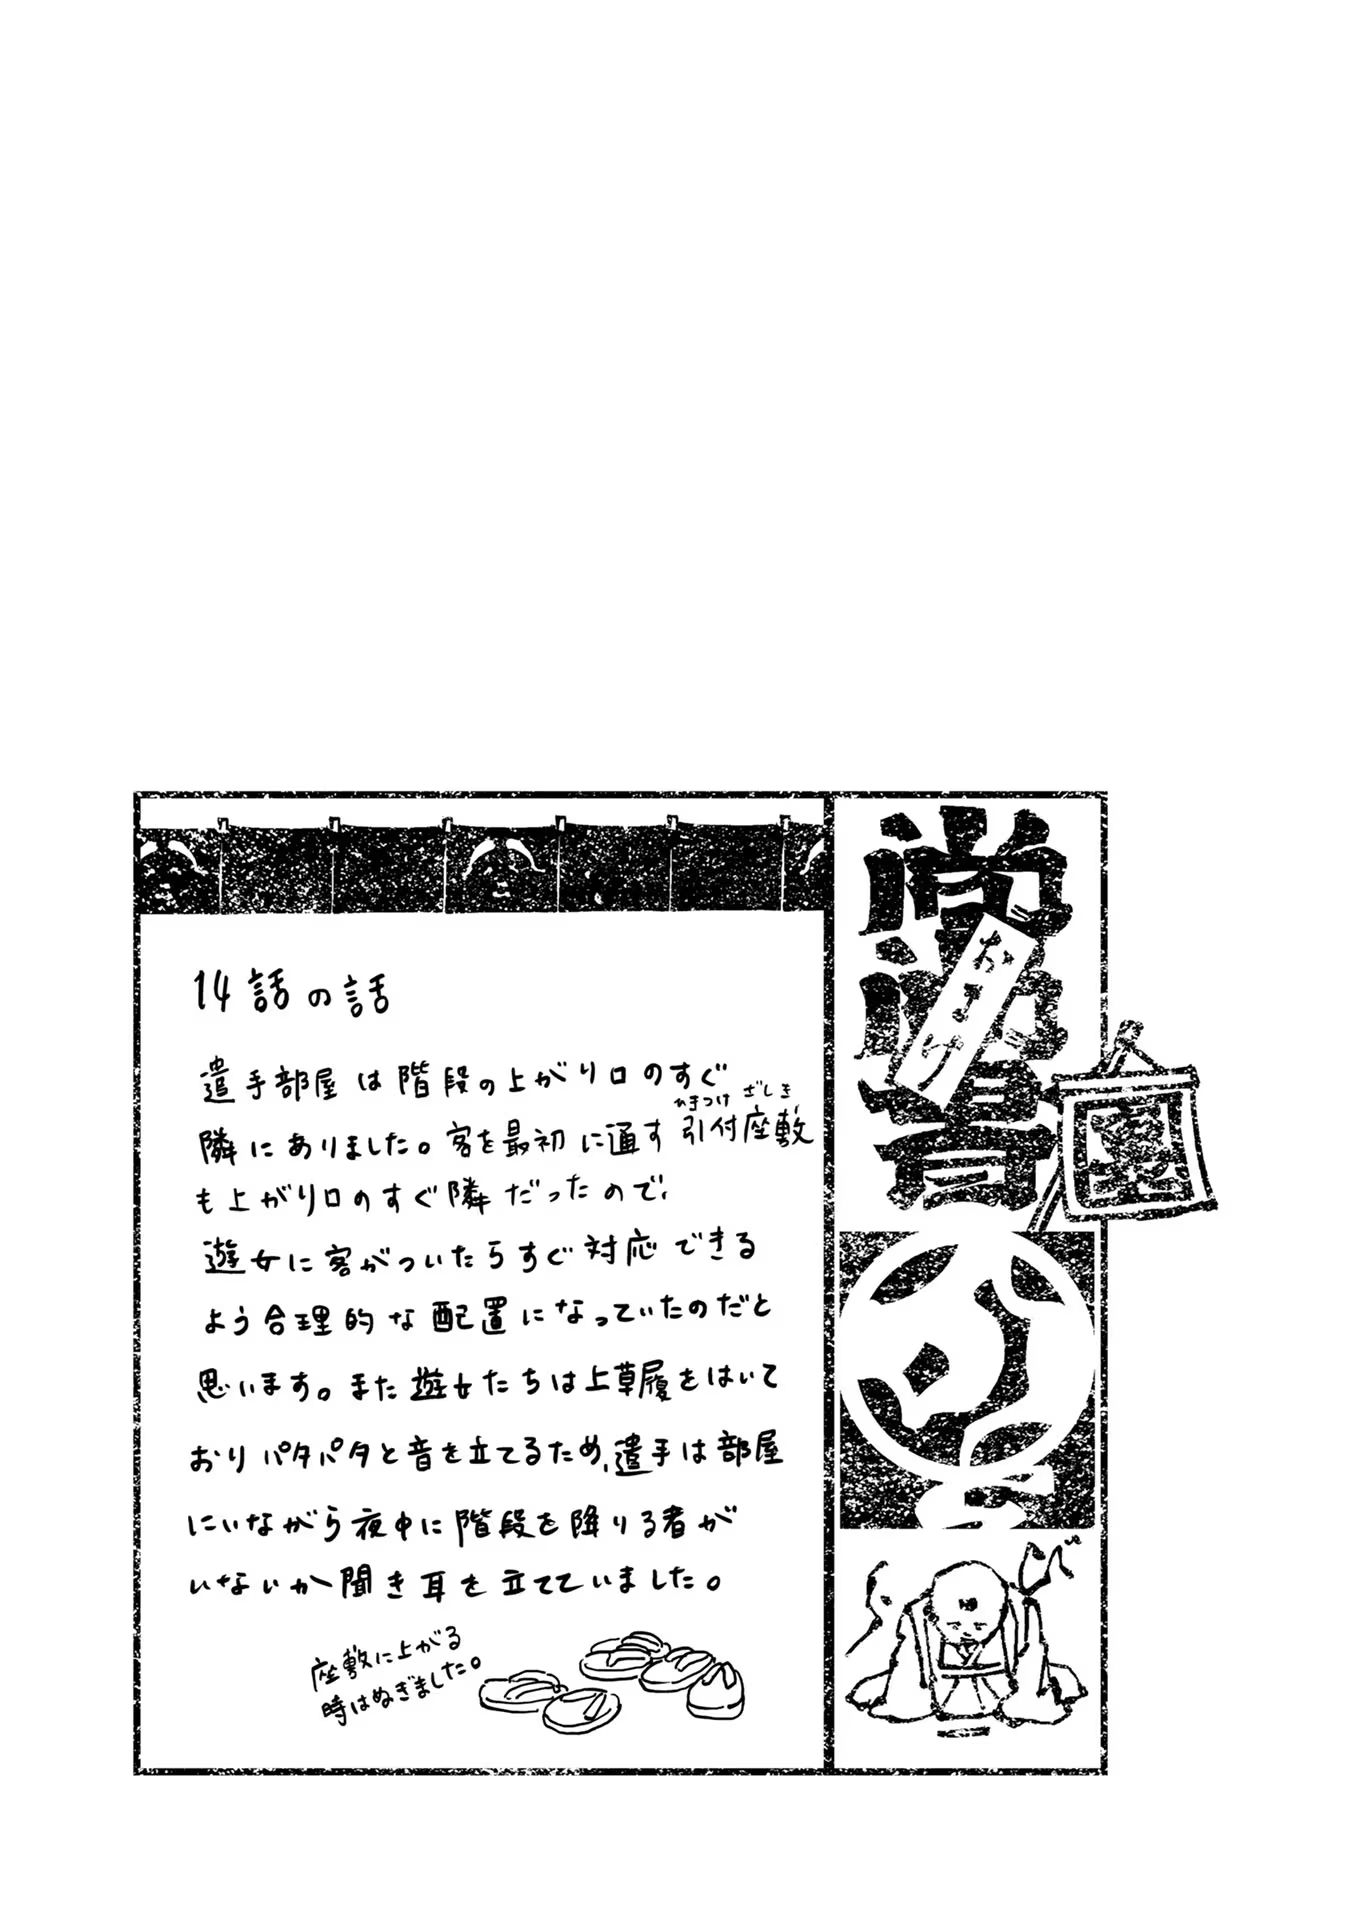 おまけ
14話の話
遣手部屋は階段の上がり口のすぐ
隣にありました。客を最初に通す引付座敷
ひきつけ ざしき
も上がり口のすぐ隣だったので、
遊女に客がついたらすぐ対応できる
よう合理的な配置になっていたのだと
思います。また遊女たちは上草履をはいて
おりパタパタと音を立てるため、遣手は部屋
にいながら夜中に階段を降りる者が
いないか聞き耳を立てていました。
座敷に上がる
時はぬぎました。